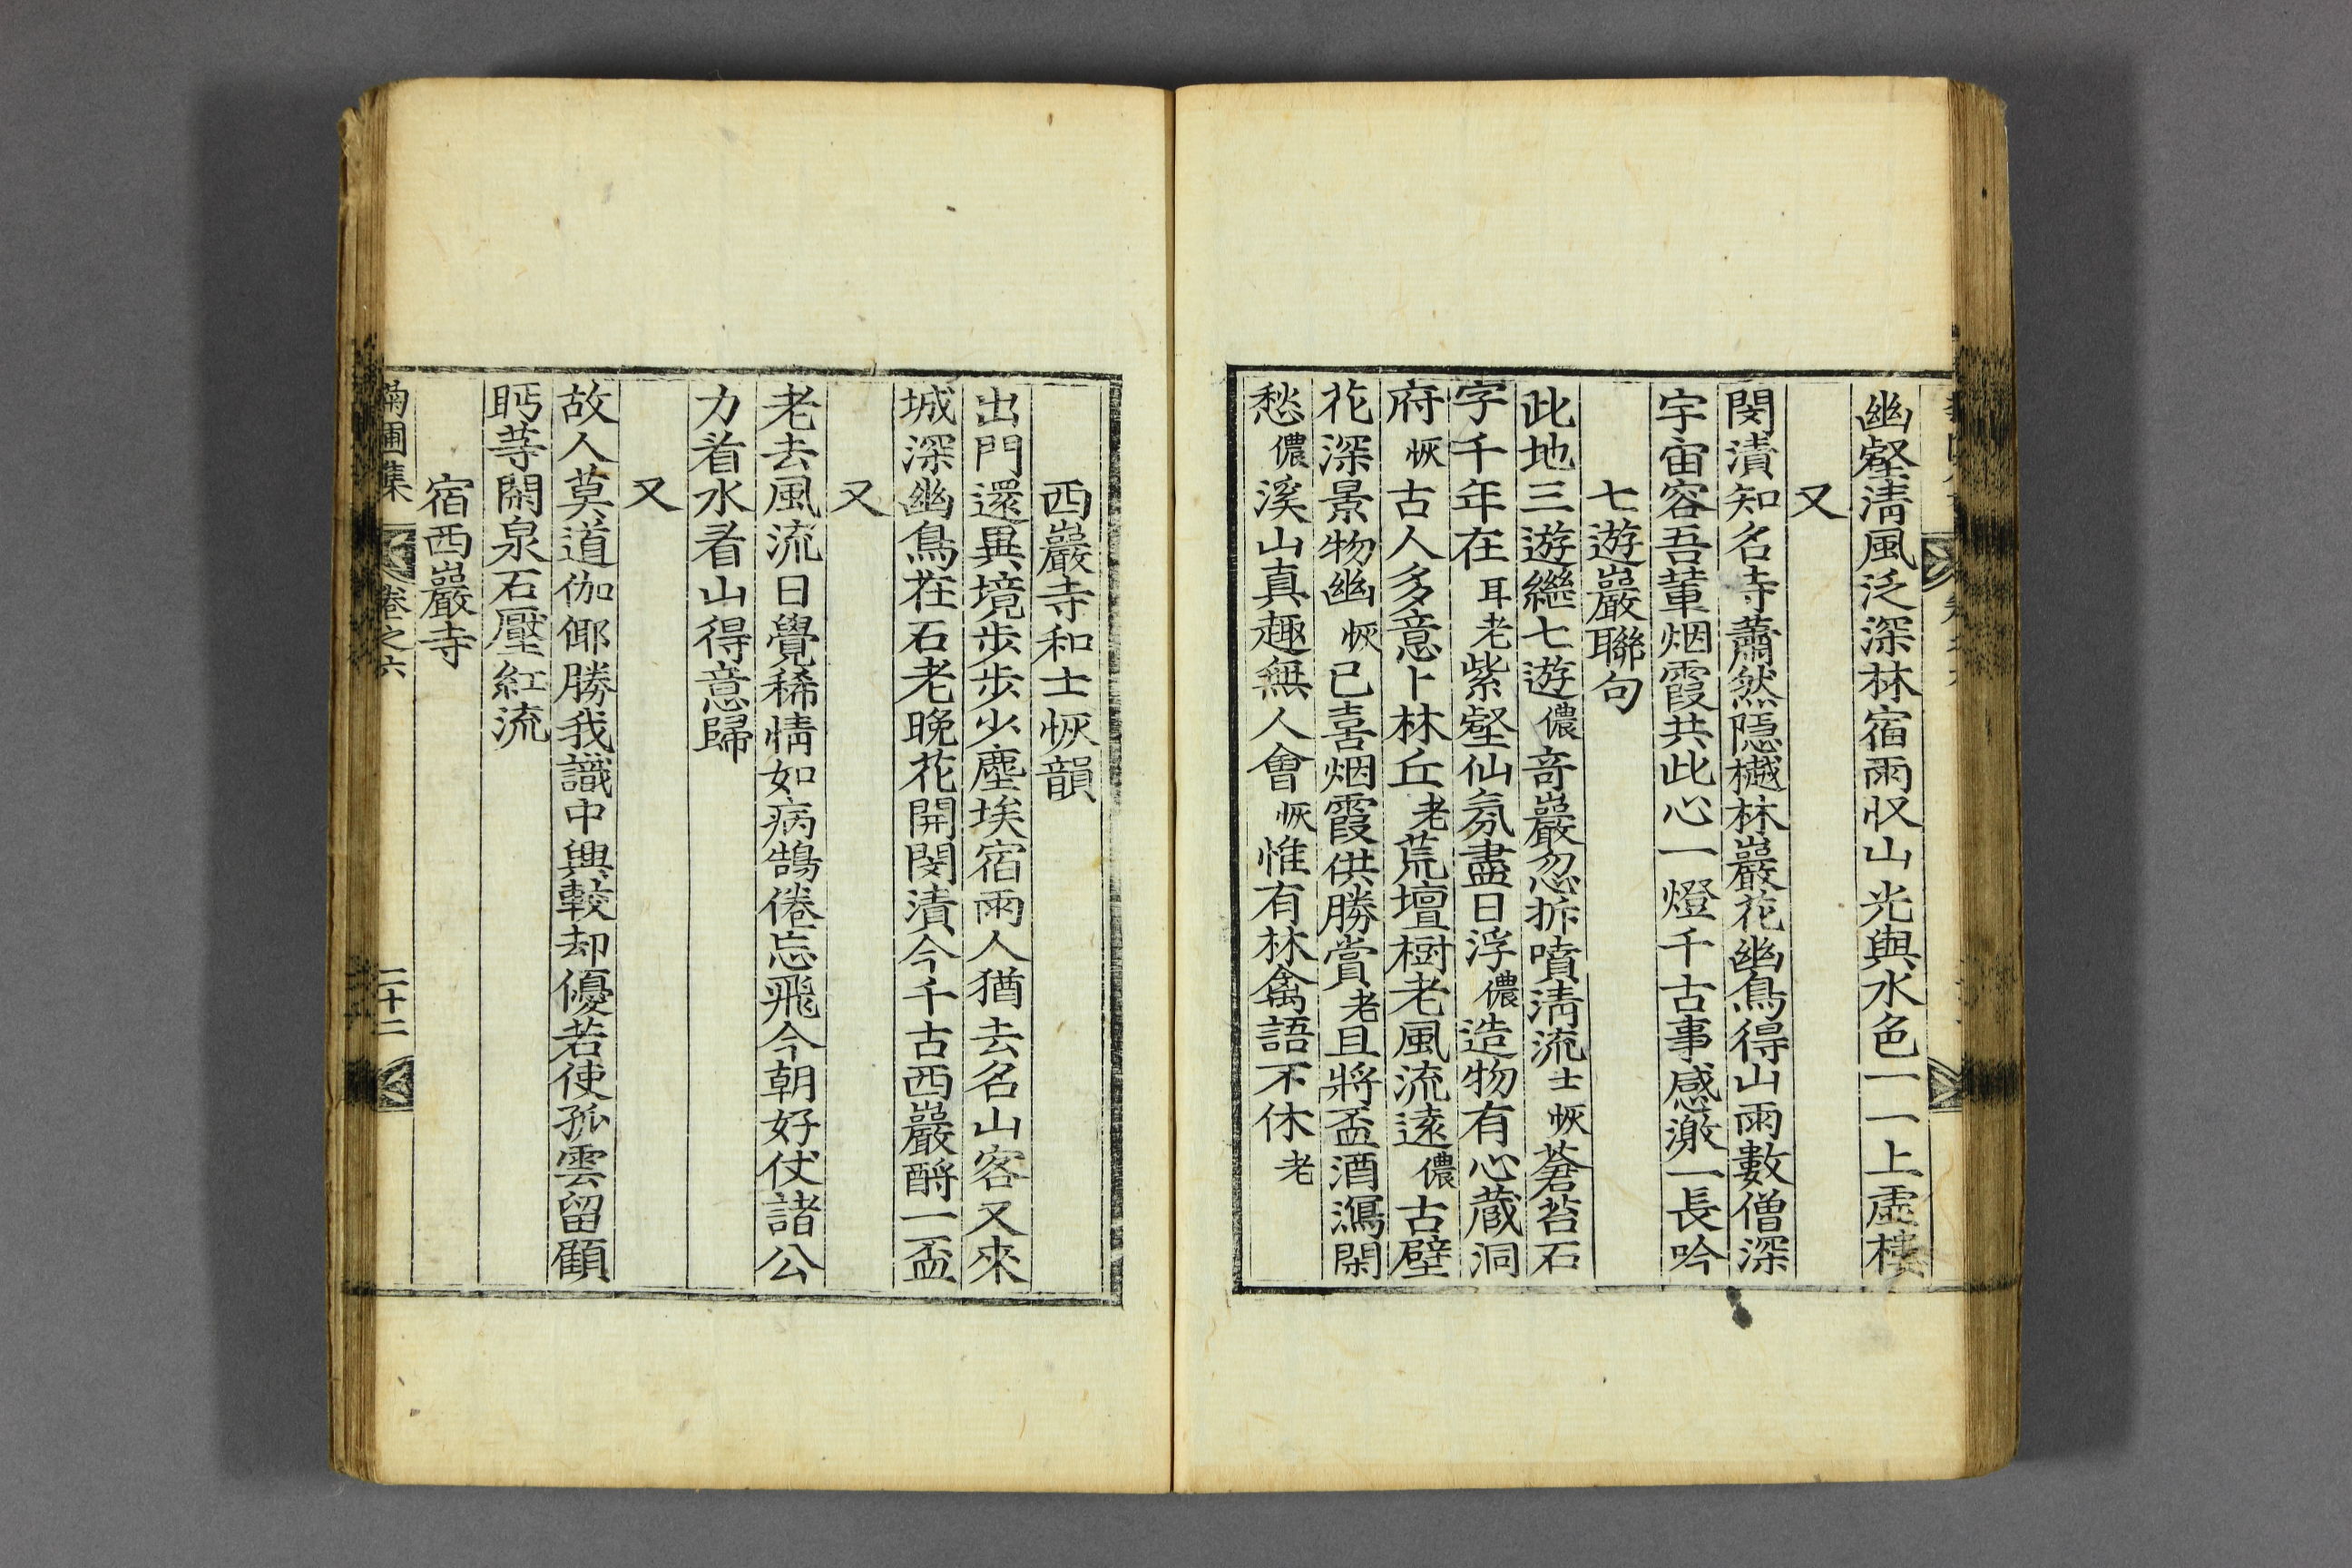 幽壑淸風泛深林宿雨収山光與水色一一上虛樓
又
閔漬知名寺蕭然隠樾林巖花幽鳥得山雨數僧深
宇宙容吾軰烟霞共此心一燈千古事感激一長吟
七遊巖聯句
此地三遊繼七遊儂竒巖忽拆噴淸流士恢蒼苔石
字千年在耳老紫壑仙氛盡日浮儂造物有心蔵洞
府恢古人多意卜林丘老荒壇樹老風流遠儂古壁
花深景物幽恢已喜烟霞供勝賞老且將盃酒瀉閑
愁儂溪山真趣無人會恢惟有林禽語不休老
西巖寺和士恢韻
出門還異境歩歩少塵埃宿雨人猶去名山客又來
城深幽鳥在石老晚花開閔漬今千古西巖酹一盃
又
老去風流日覺稀情如病鵠倦忘飛今朝好仗諸公
力着水看山得意歸
又
故人莫道伽倻勝我識中興較却優若使孤雲留顧
眄䓁閑泉石壓紅流
宿西巖寺
菊圃集
卷之六
二十二